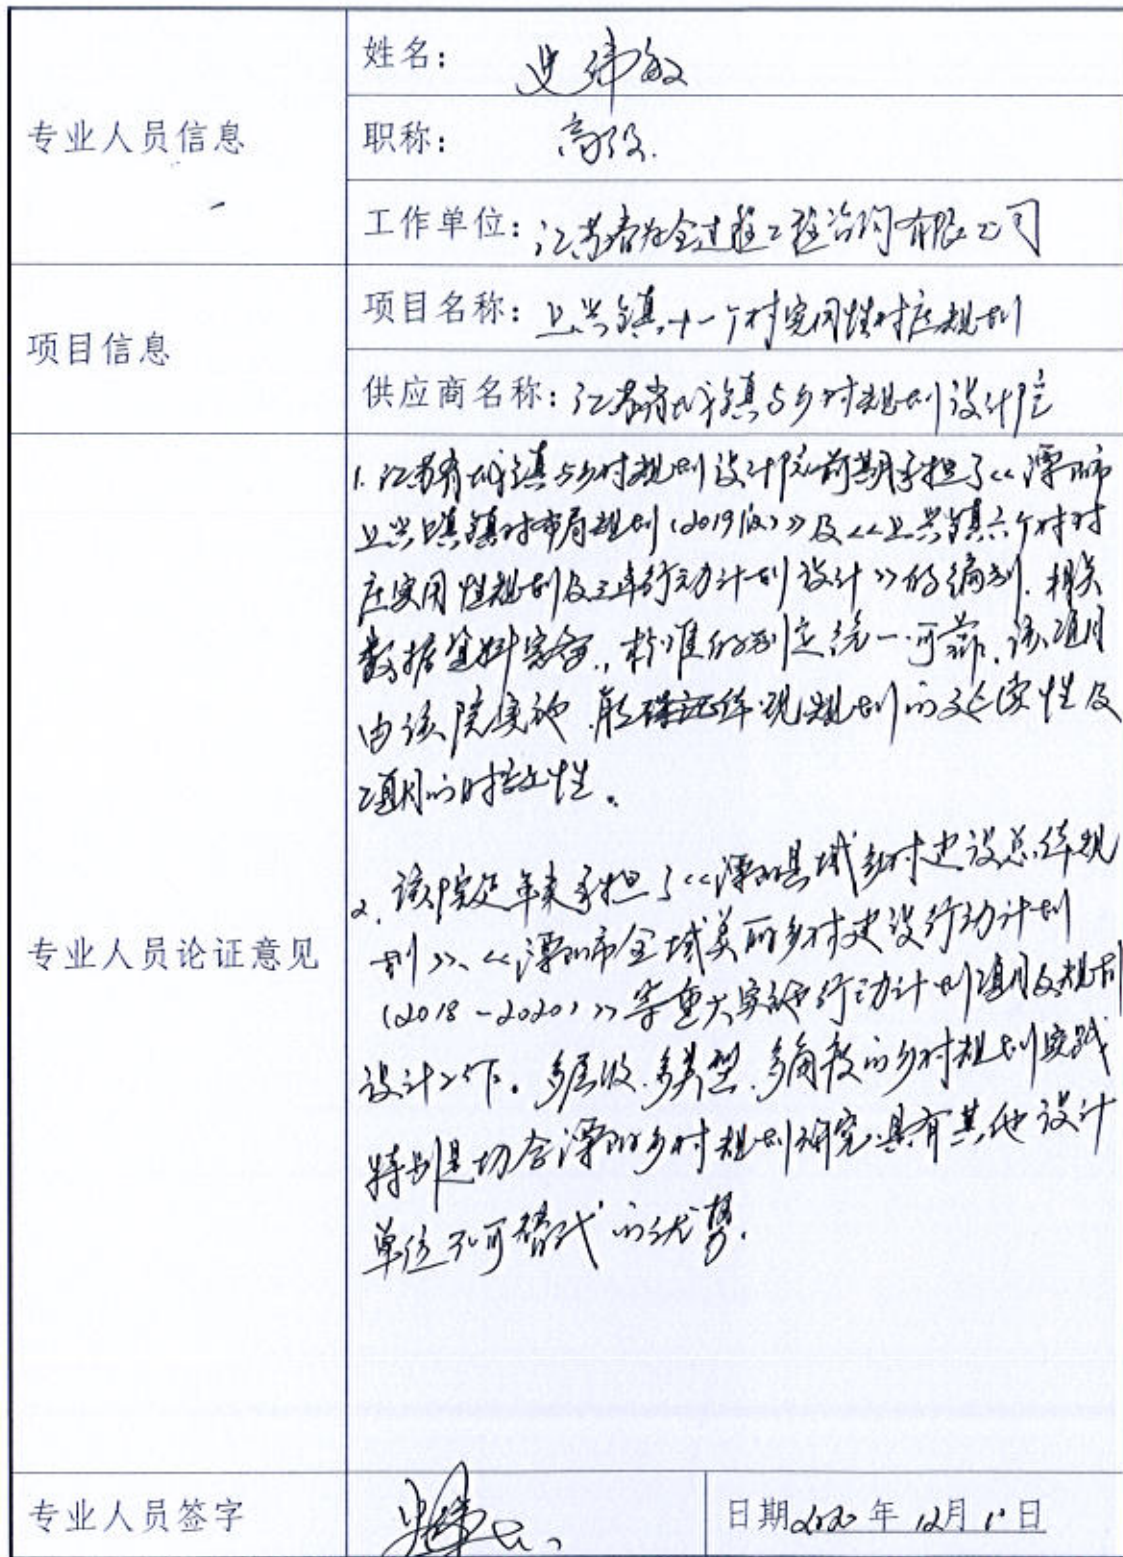 专业人员信息
姓名: 史伟敏
职称: 高级.
工作单位: 江苏春为全过程工程咨询有限公司
项目信息
项目名称: 上兴镇十一个村实用性村庄规划
供应商名称: 江苏省城镇与乡村规划设计院
专业人员论证意见
1. 江苏省城镇与乡村规划设计院前期承担了《溧阳市
上兴镇镇村布局规划(2019版)》及《上兴镇六个村村
庄实用性规划及三年行动计划设计》的编制. 相关
数据资料完备, 标准的判定统一可靠, 该项目
由该院实施, 能保证体现规划的延续性及
项目的时效性。
2. 该院近年来承担了《溧阳县域乡村建设总体规
划》、《溧阳市全域美丽乡村建设行动计划
(2018-2020)》等重大实施行动计划项目及规划
设计工作。多层级、多类型、多角度的乡村规划实践
特别是切合溧阳乡村规划研究具有其他设计
单位不可替代的优势.
专业人员签字
日期2020年12月1日